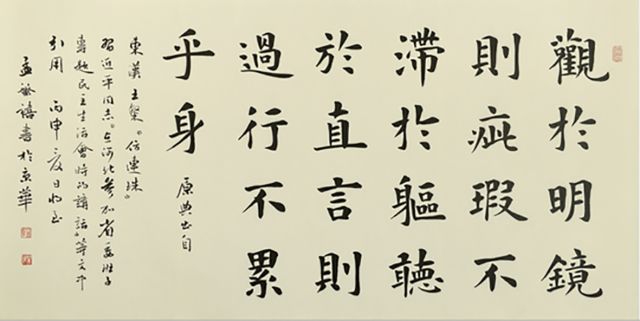 觀於明鏡
則疵瑕不
滯於軀聽
於直言則
過行不累
乎身 原典出自
東漢王粲《仿連珠》
習近平同志《在河北參加省委班子
專題民主生活會時的講話》等文中
引用 丙申夏日
孟繁禧書於京華